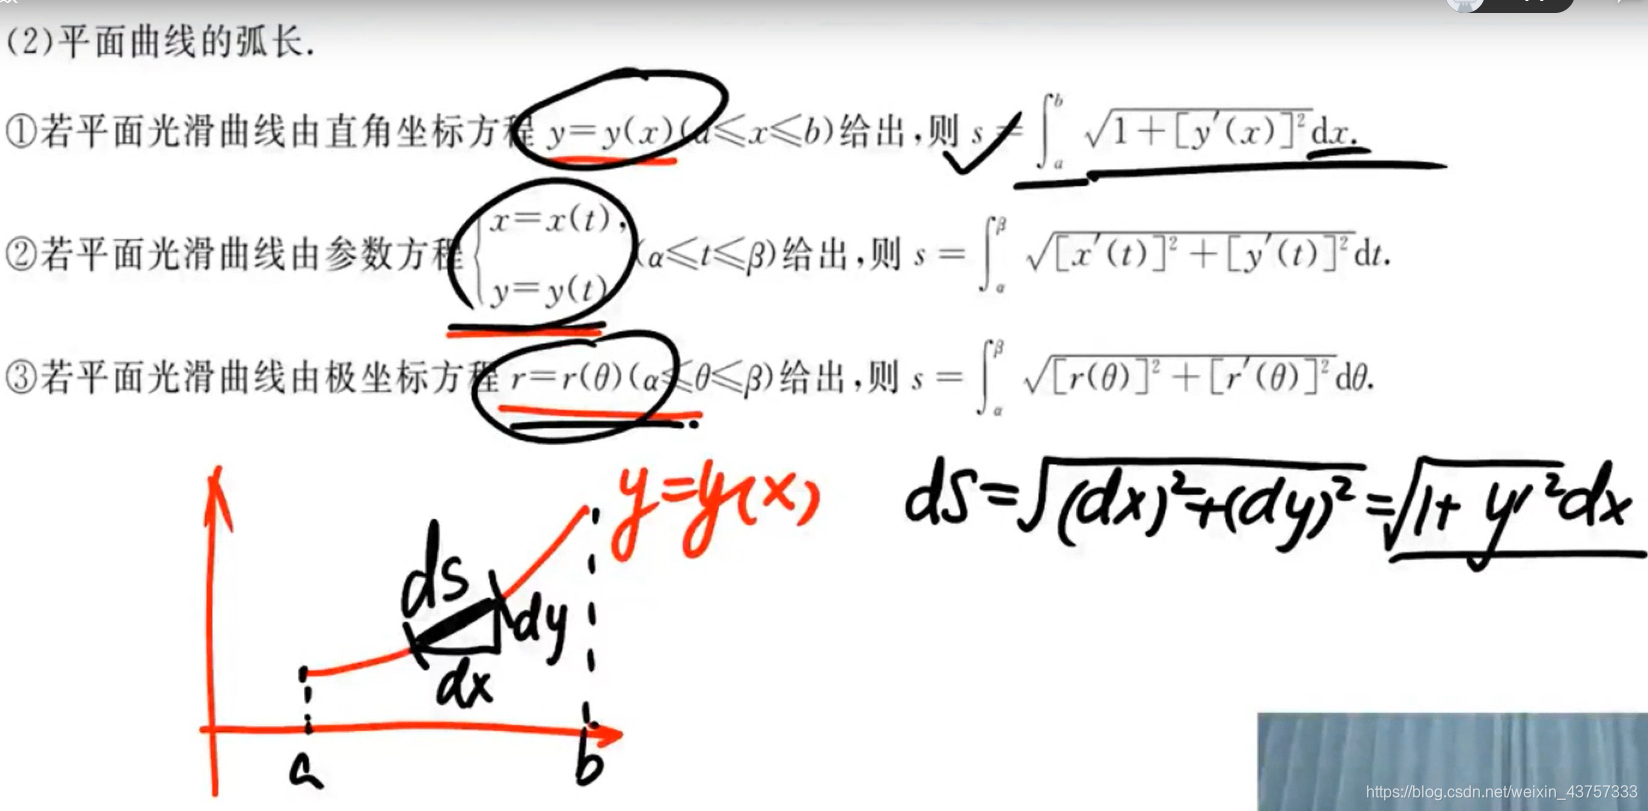 (2)平面曲线的弧长.
①若平面光滑曲线由直角坐标方程 y=y(x)(a≤x≤b)给出,则 s=∫_a^b √(1+[y′(x)]²)dx.
②若平面光滑曲线由参数方程{x=x(t), y=y(t) (α≤t≤β)给出,则 s=∫_α^β √([x′(t)]²+[y′(t)]²)dt.
③若平面光滑曲线由极坐标方程 r=r(θ)(α≤θ≤β)给出,则 s=∫_α^β √([r(θ)]²+[r′(θ)]²)dθ.
y=y(x)
ds=√((dx)²+(dy)²)=√(1+y′²)dx
ds
dy
dx
a
b
https://blog.csdn.net/weixin_43757333